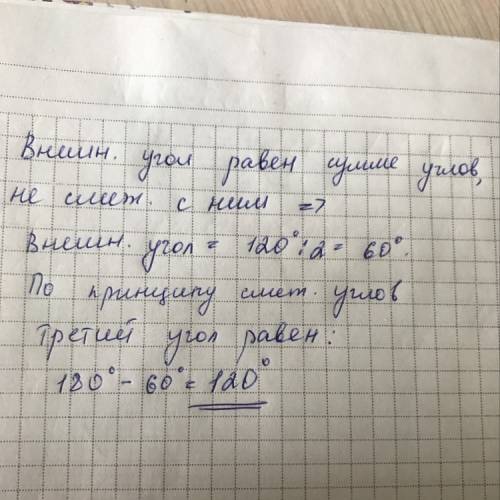 Внешн. угол равен сумме углов,
не смеж. с ним =>
Внешн. угол = 120° : 2 = 60°.
По принципу смеж. углов
третий угол равен:
180° - 60° = 120°